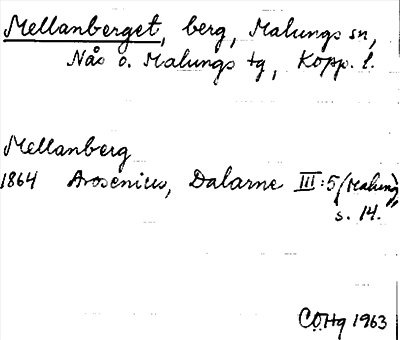 Mellanberget, berg, Malungs sn,
Nås o. Malungs tg, Kopp. l.
Mellanberg
1864 Arosenius, Dalarne III:5 (Malung),
s. 14.
COHg 1963